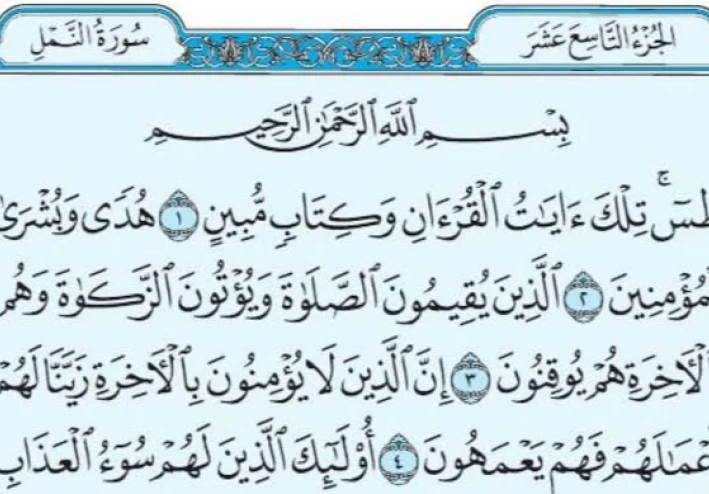 الجُزْءُ التَّاسِعَ عَشَرَ
سُورَةُ النَّمْلِ
بِسْمِ ٱللَّهِ ٱلرَّحْمَٰنِ ٱلرَّحِيمِ
طسٓۚ تِلْكَ ءَايَٰتُ ٱلْقُرْءَانِ وَكِتَابٍ مُّبِينٍ ١ هُدًى وَبُشْرَىٰ
لْمُؤْمِنِينَ ٢ ٱلَّذِينَ يُقِيمُونَ ٱلصَّلَوٰةَ وَيُؤْتُونَ ٱلزَّكَوٰةَ وَهُم
ٱلْءَاخِرَةِ هُمْ يُوقِنُونَ ٣ إِنَّ ٱلَّذِينَ لَا يُؤْمِنُونَ بِٱلْءَاخِرَةِ زَيَّنَّا لَهُمْ
عْمَٰلَهُمْ فَهُمْ يَعْمَهُونَ ٤ أُو۟لَٰٓئِكَ ٱلَّذِينَ لَهُمْ سُوٓءُ ٱلْعَذَابِ